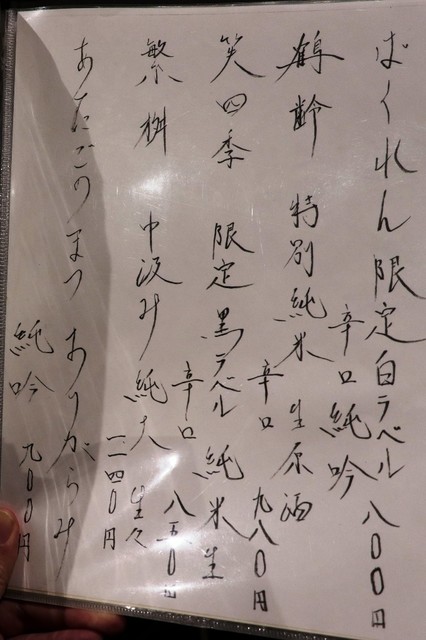 ばくれん 限定白ラベル 八〇〇円
辛口 純吟
鶴齢 特別純米 生原酒
辛口 九八〇円
笑四季 限定黒ラベル 純米生
辛口 八五〇円
繁桝 中汲み 純大 生々
一一四〇円
あたごのまつ ありがらみ
純吟 九〇〇円